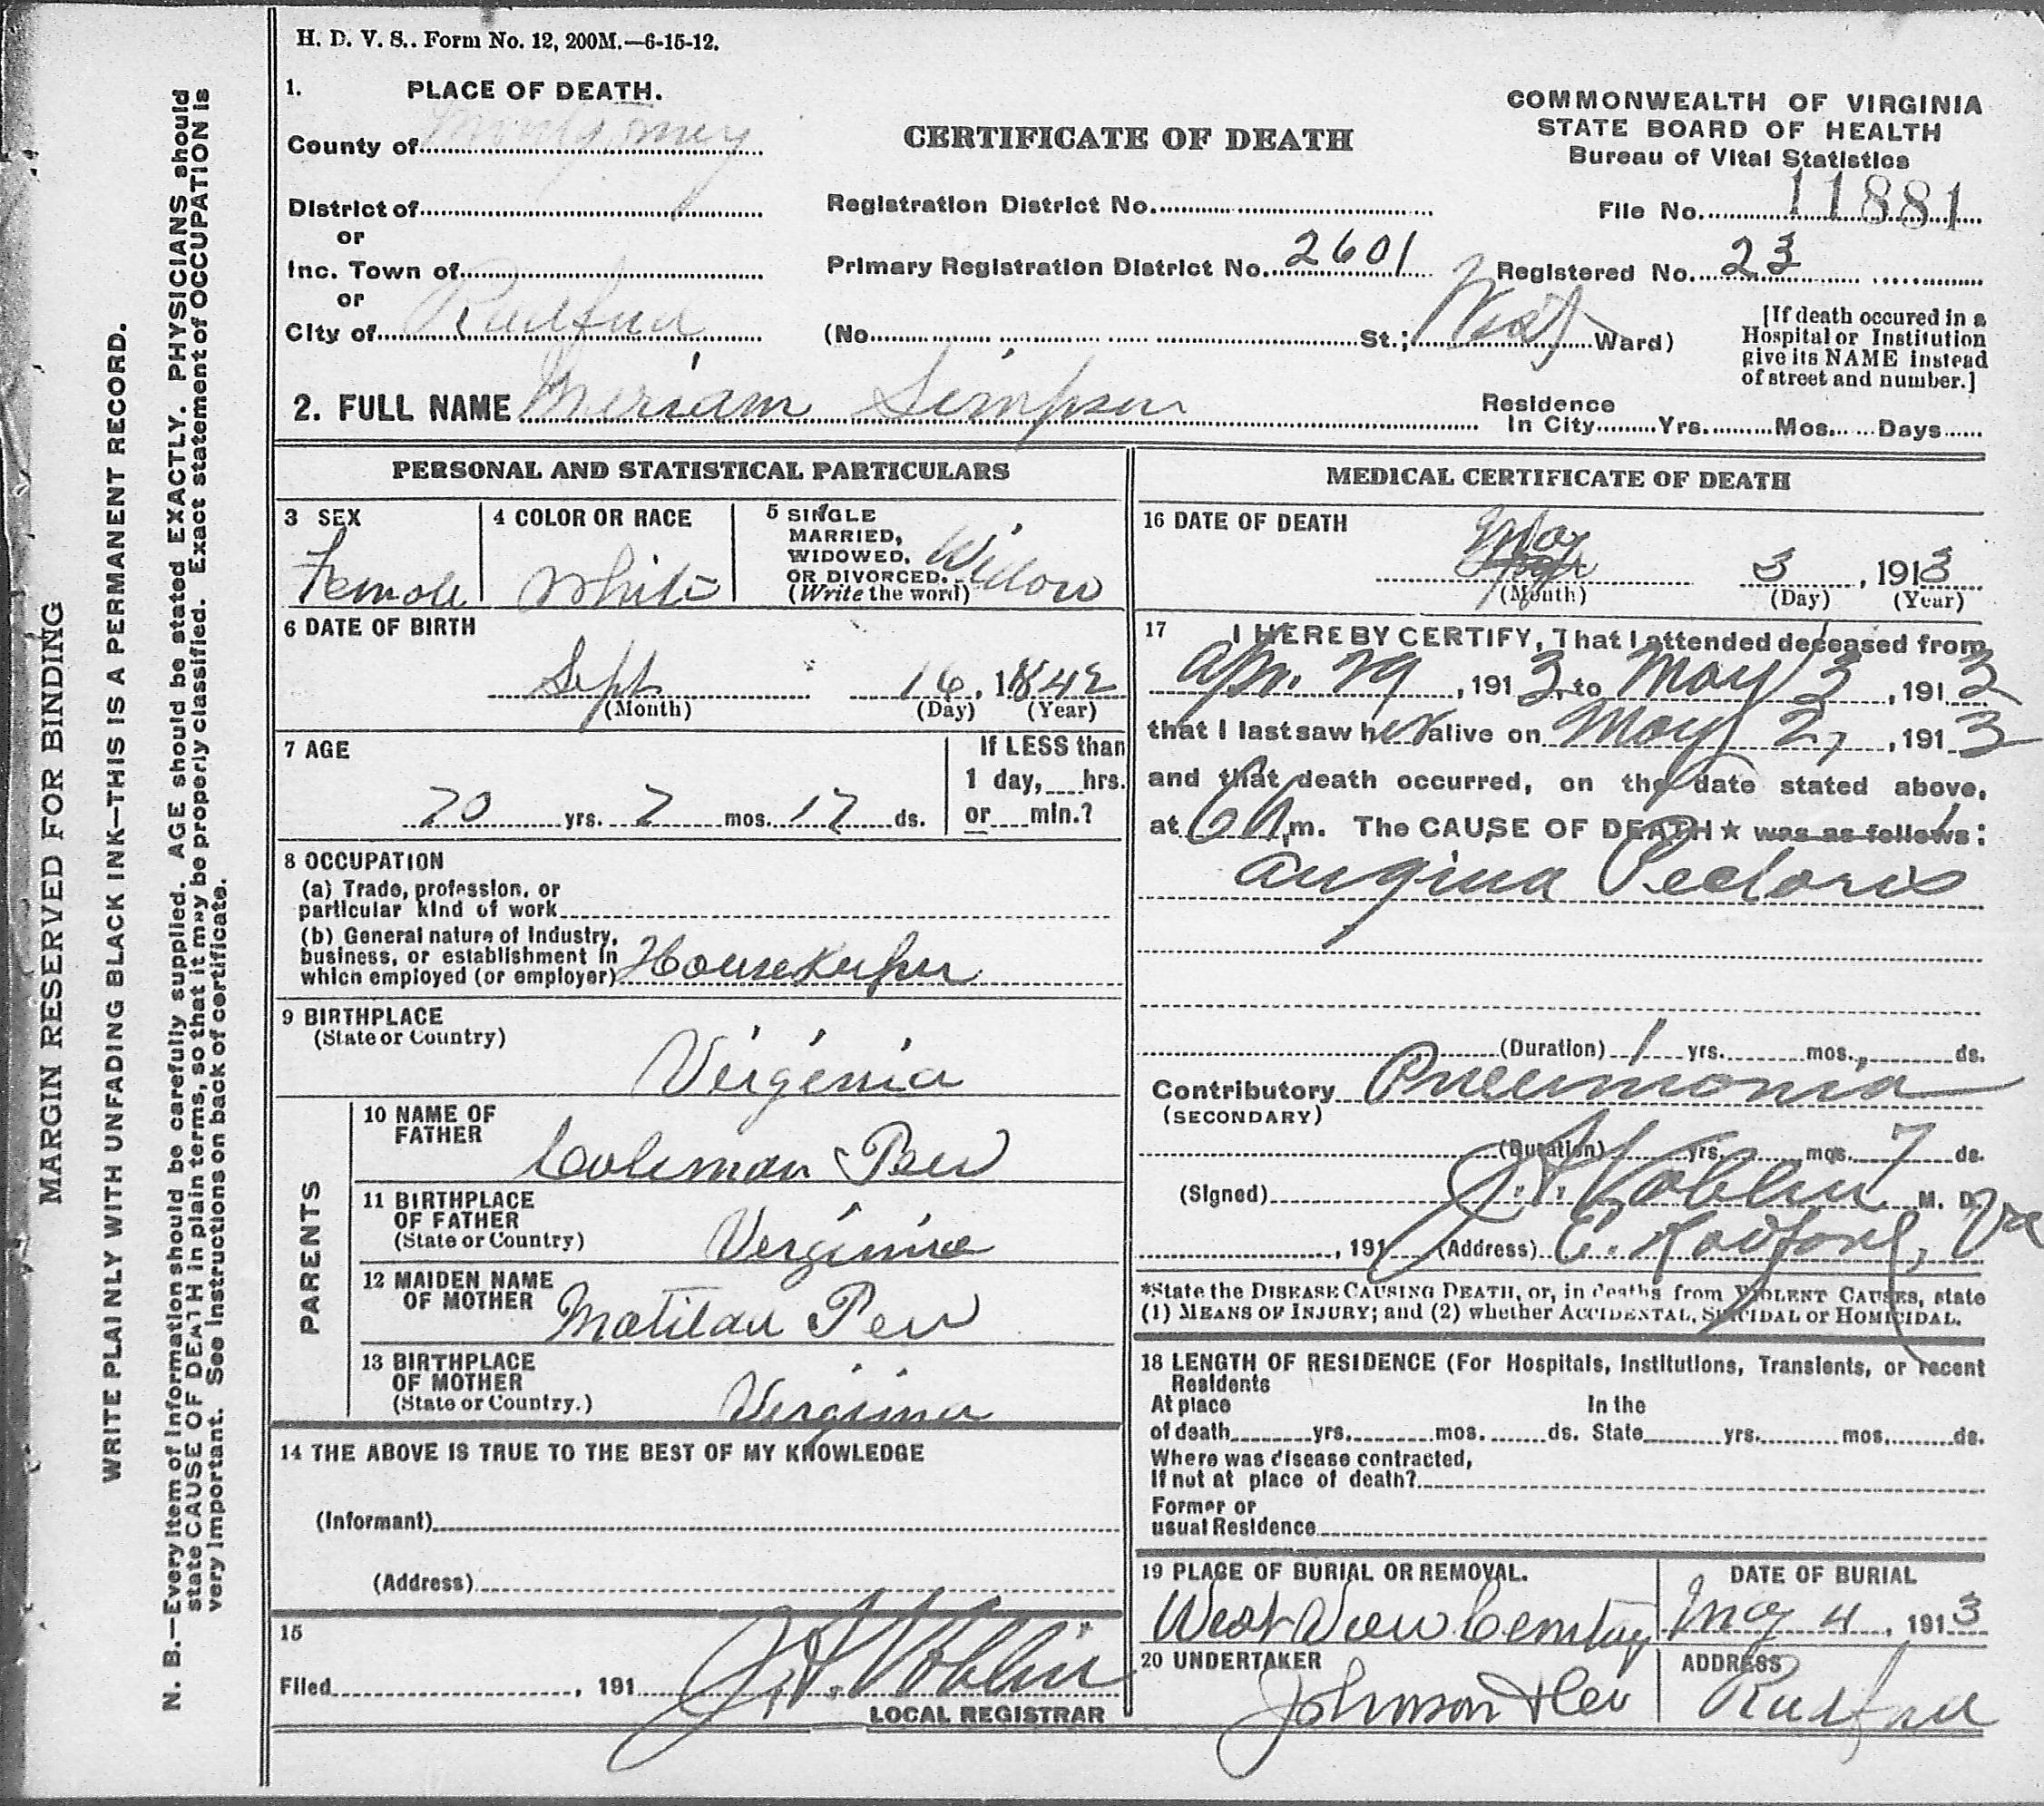 H. D. V. S.. Form No. 12, 200M.—6-15-12.
MARGIN RESERVED FOR BINDING
WRITE PLAINLY WITH UNFADING BLACK INK—THIS IS A PERMANENT RECORD.
N. B.—Every item of information should be carefully supplied. AGE should be stated EXACTLY. PHYSICIANS should
state CAUSE OF DEATH in plain terms, so that it may be properly classified. Exact statement of OCCUPATION is
very important. See instructions on back of certificate.
1. PLACE OF DEATH.
County of Montgomery
District of
or
Inc. Town of
or
City of Radford
CERTIFICATE OF DEATH
COMMONWEALTH OF VIRGINIA
STATE BOARD OF HEALTH
Bureau of Vital Statistics
Registration District No.
File No. 11881
Primary Registration District No. 2601
Registered No. 23
(No. St.; West Ward)
[If death occured in a
Hospital or Institution
give its NAME instead
of street and number.]
2. FULL NAME Meriam Simpson
Residence
In City Yrs. Mos. Days
PERSONAL AND STATISTICAL PARTICULARS
3 SEX
Female
4 COLOR OR RACE
White
5 SINGLE
MARRIED,
WIDOWED,
OR DIVORCED.
(Write the word)
Widow
6 DATE OF BIRTH
Sept 16, 1842
(Month) (Day) (Year)
7 AGE
70 yrs. 7 mos. 17 ds.
If LESS than
1 day, hrs.
or min.?
8 OCCUPATION
(a) Trade, profession, or
particular kind of work
(b) General nature of Industry,
business, or establishment in
which employed (or employer) Housekeeper
9 BIRTHPLACE
(State or Country)
Virginia
PARENTS
10 NAME OF
FATHER
Coleman Pew
11 BIRTHPLACE
OF FATHER
(State or Country)
Virginia
12 MAIDEN NAME
OF MOTHER
Matilda Pew
13 BIRTHPLACE
OF MOTHER
(State or Country.)
Virginia
14 THE ABOVE IS TRUE TO THE BEST OF MY KNOWLEDGE
(Informant)
(Address)
15
Filed , 191
LOCAL REGISTRAR
MEDICAL CERTIFICATE OF DEATH
16 DATE OF DEATH
May 3, 1913
(Month) (Day) (Year)
17 I HEREBY CERTIFY, That I attended deceased from
Apr. 29, 1913, to May 3, 1913
that I last saw her alive on May 2, 1913
and that death occurred, on the date stated above,
at 6 A m. The CAUSE OF DEATH ★ was as follows:
Angina Pectoris
(Duration) 1 yrs. mos. ds.
Contributory Pneumonia
(SECONDARY)
(Duration) yrs. mos. 7 ds.
(Signed) M. D.
, 191 (Address) E. Radford, Va
*State the DISEASE CAUSING DEATH, or, in deaths from VIOLENT CAUSES, state
(1) MEANS OF INJURY; and (2) whether ACCIDENTAL, SUICIDAL or HOMICIDAL.
18 LENGTH OF RESIDENCE (For Hospitals, Institutions, Transients, or recent
Residents
At place In the
of death yrs. mos. ds. State yrs. mos. ds.
Where was disease contracted,
If not at place of death?
Former or
usual Residence
19 PLACE OF BURIAL OR REMOVAL.
West View Cemetery
DATE OF BURIAL
May 4, 1913
20 UNDERTAKER
Johnson &
ADDRESS
Radford